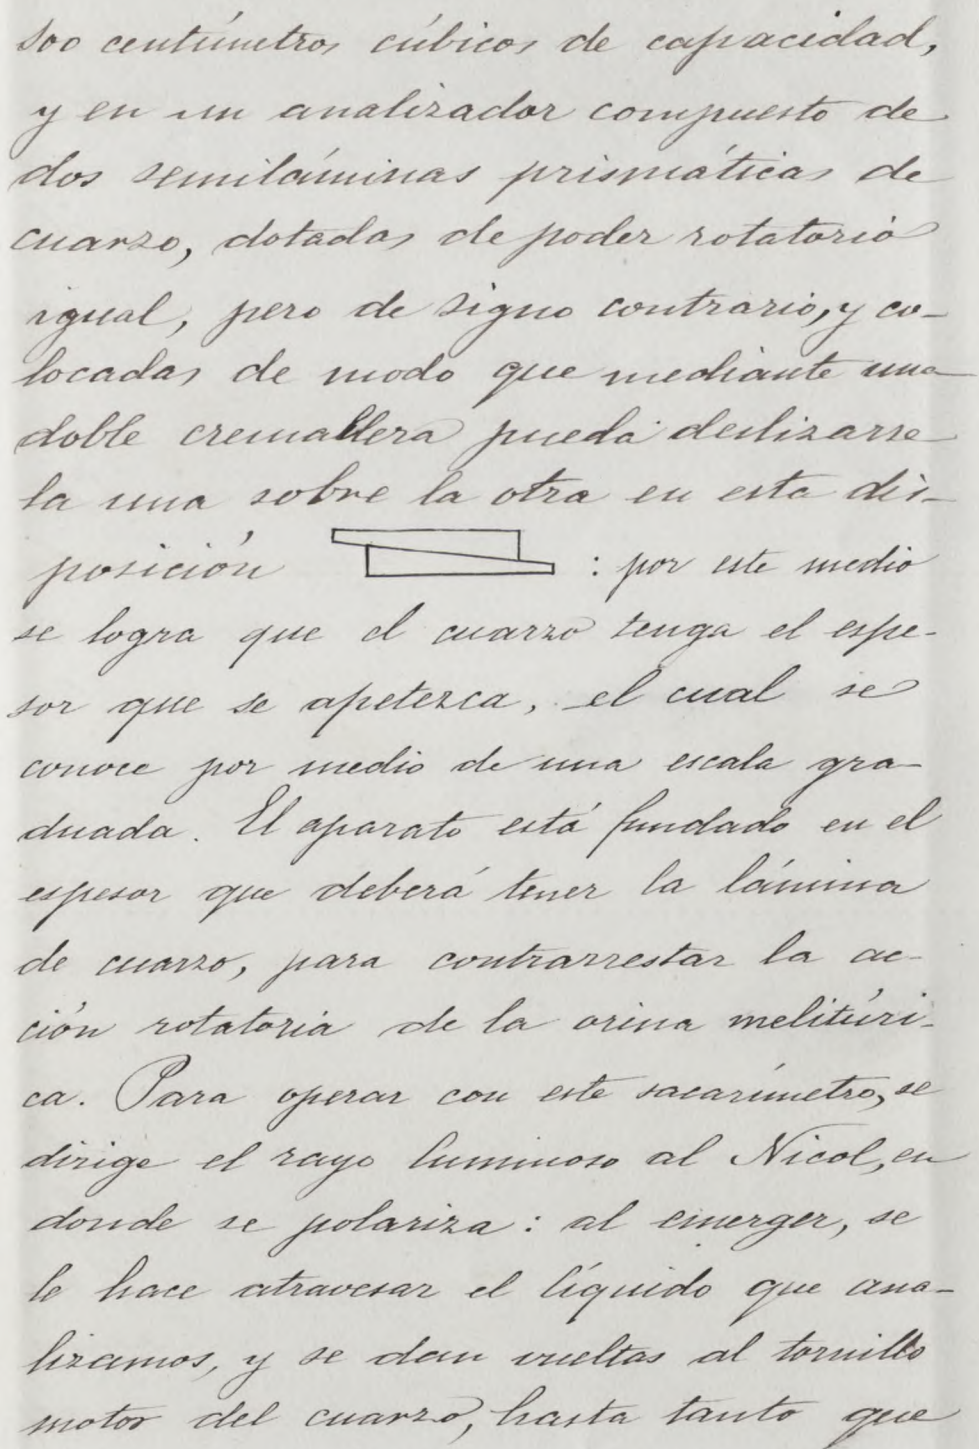 500 centímetros cúbicos de capacidad,
y en un analizador compuesto de
dos semiláminas prismáticas de
cuarzo, dotadas de poder rotatorio
igual, pero de signo contrario, y co-
locadas de modo que mediante una
doble cremallera pueda deslizarse
la una sobre la otra en esta dis-
posición : por este medio
se logra que el cuarzo tenga el espe-
sor que se apetezca, el cual se
conoce por medio de una escala gra-
duada. El aparato está fundado en el
espesor que deberá tener la lámina
de cuarzo, para contrarrestar la ac-
ción rotatoria de la orina melitúri-
ca. Para operar con este sacarímetro, se
dirige el rayo luminoso al Nicol, en
donde se polariza: al emerger, se
le hace atravesar el líquido que ana-
lizamos, y se dan vueltas al tornillo
motor del cuarzo, hasta tanto que